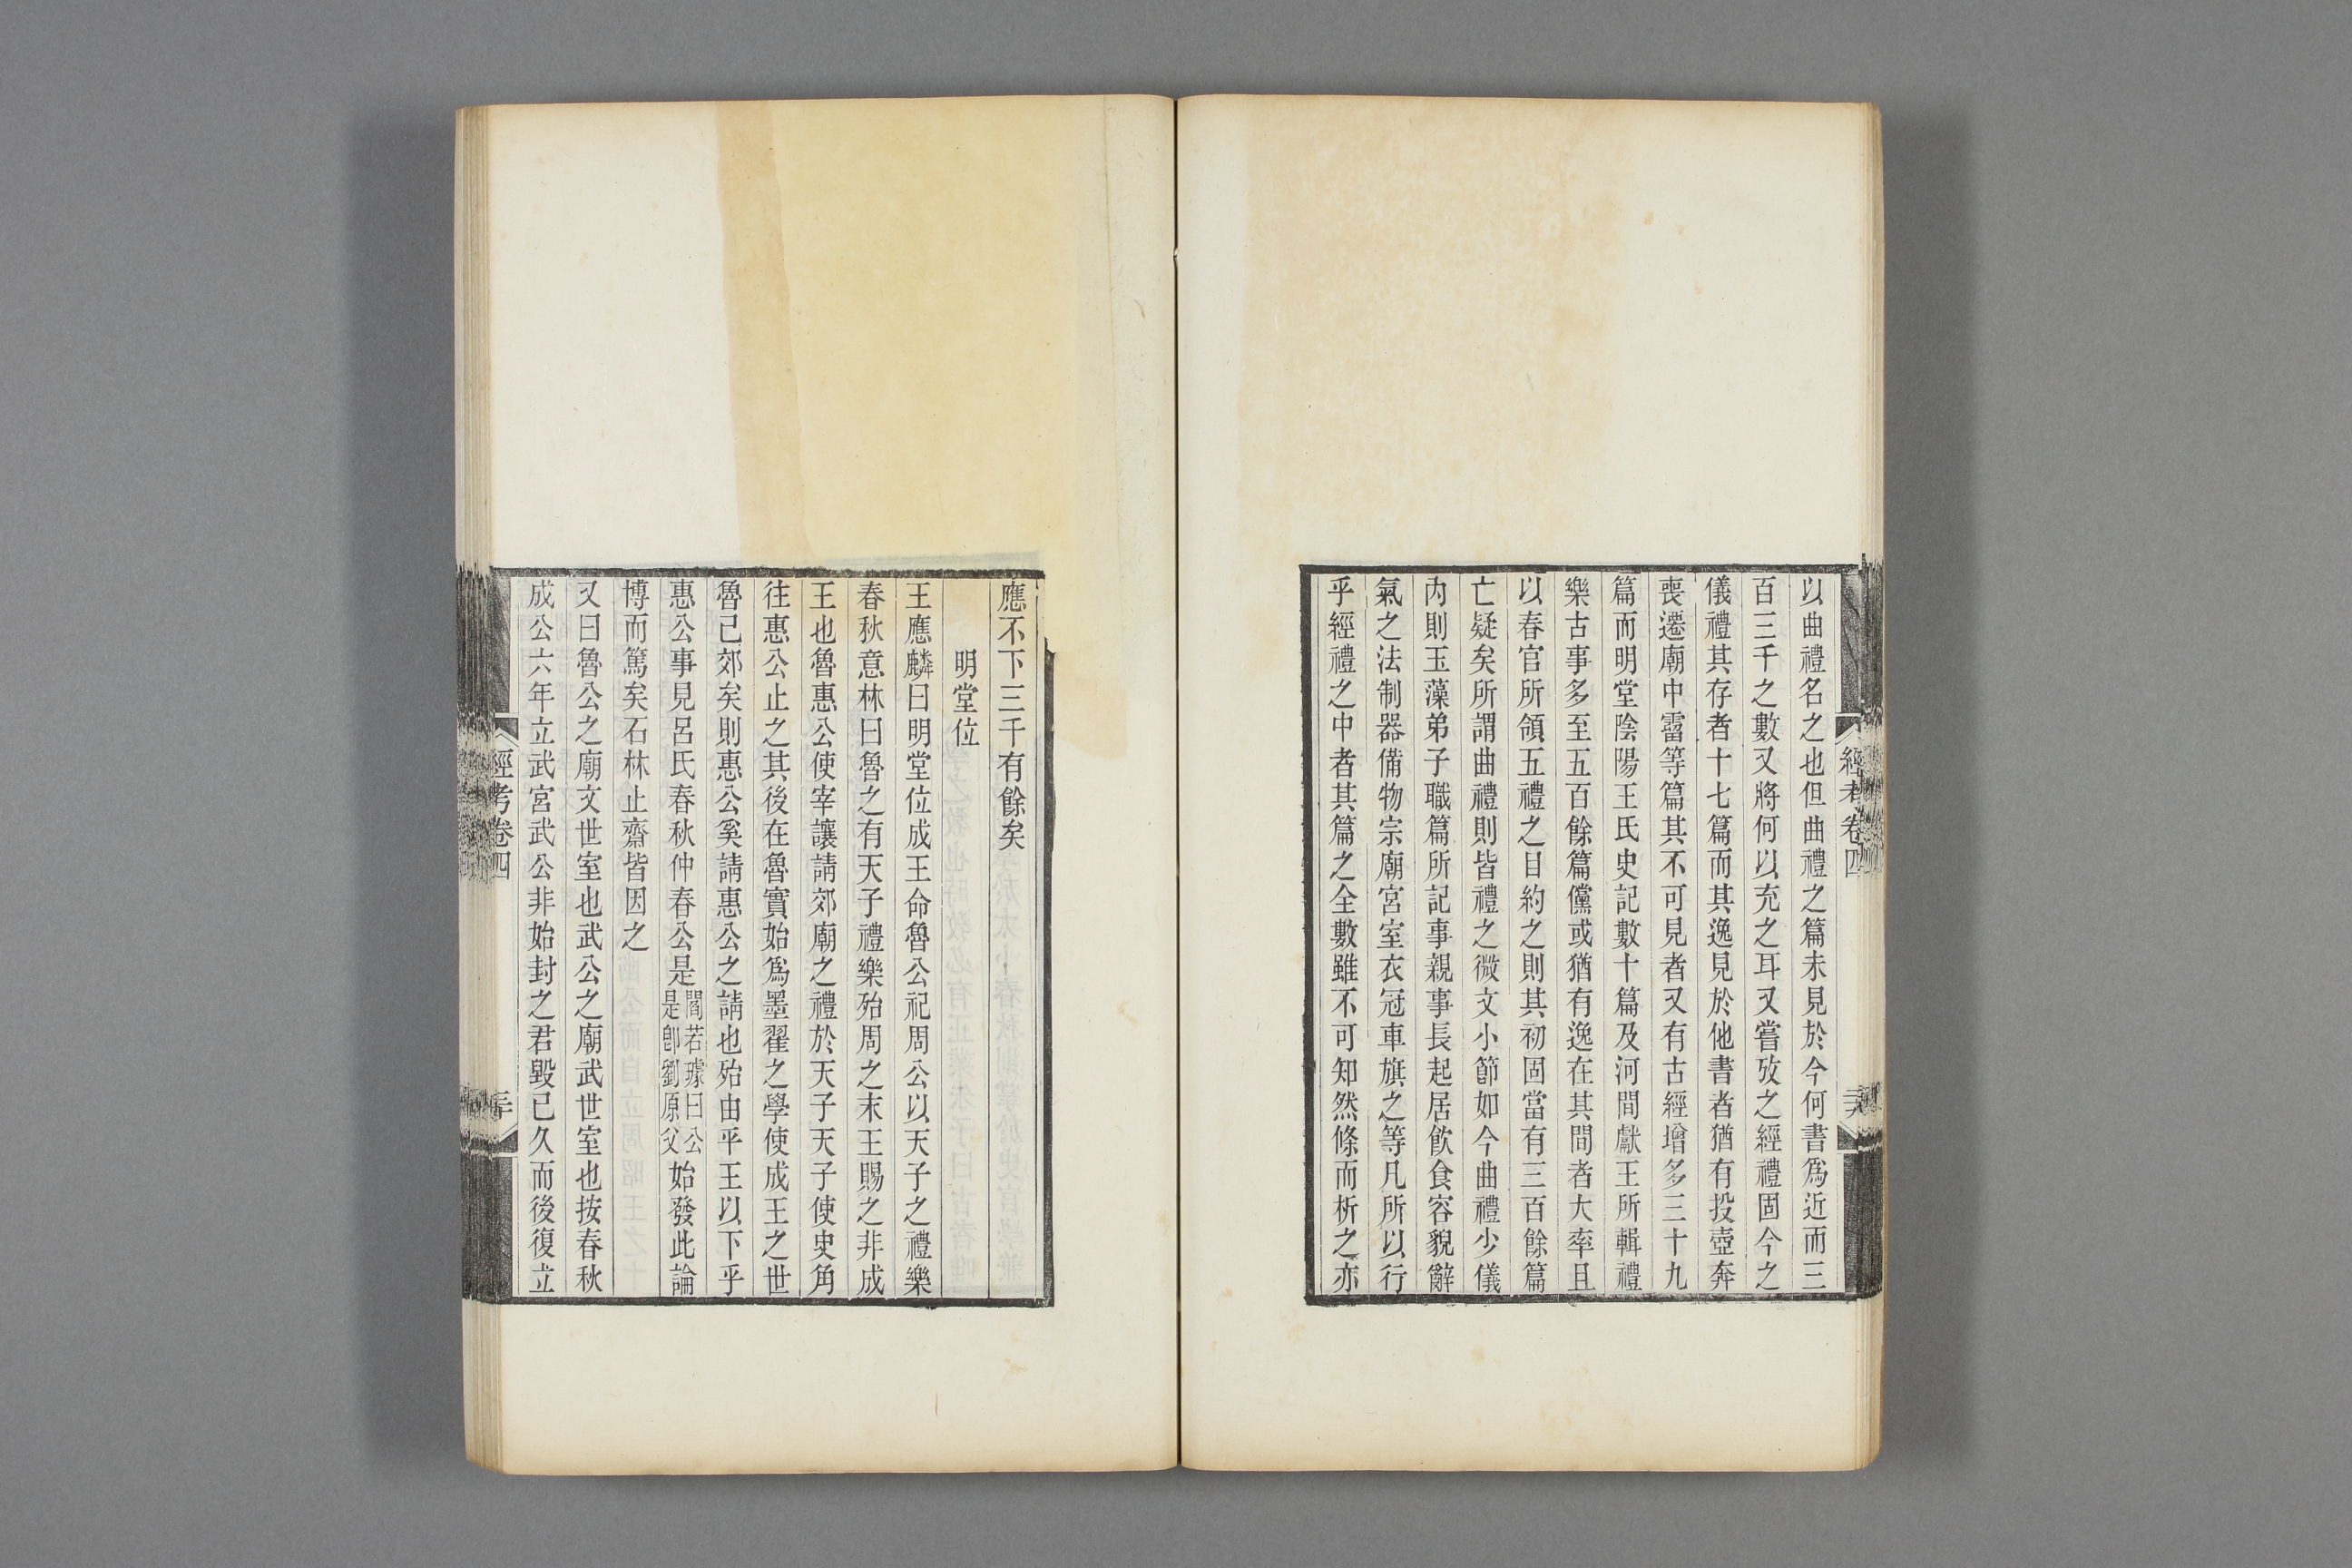 以曲禮名之也但曲禮之篇未見於今何書爲近而三
百三千之數又將何以充之耳又嘗攷之經禮固今之
儀禮其存者十七篇而其逸見於他書者猶有投壺奔
喪遷廟中霤等篇其不可見者又有古經增多三十九
篇而明堂陰陽王氏史記數十篇及河間獻王所輯禮
樂古事多至五百餘篇儻或猶有逸在其間者大率且
以春官所領五禮之目約之則其初固當有三百餘篇
亡疑矣所謂曲禮則皆禮之微文小節如今曲禮少儀
內則玉藻弟子職篇所記事親事長起居飮食容貌辭
氣之法制器備物宗廟宮室衣冠車旗之等凡所以行
乎經禮之中者其篇之全數雖不可知然條而析之亦
經考卷四
應不下三千有餘矣
明堂位
王應麟曰明堂位成王命魯公祀周公以天子之禮樂
春秋意林曰魯之有天子禮樂殆周之末王賜之非成
王也魯惠公使宰讓請郊廟之禮於天子天子使史角
往惠公止之其後在魯實始爲墨翟之學使成王之世
魯已郊矣則惠公奚請惠公之請也殆由平王以下乎
惠公事見呂氏春秋仲春公是閻若璩曰公是卽劉原父始發此論
博而篤矣石林止齋皆因之
又曰魯公之廟文世室也武公之廟武世室也按春秋
成公六年立武宮武公非始封之君毀已久而後復立
經考卷四